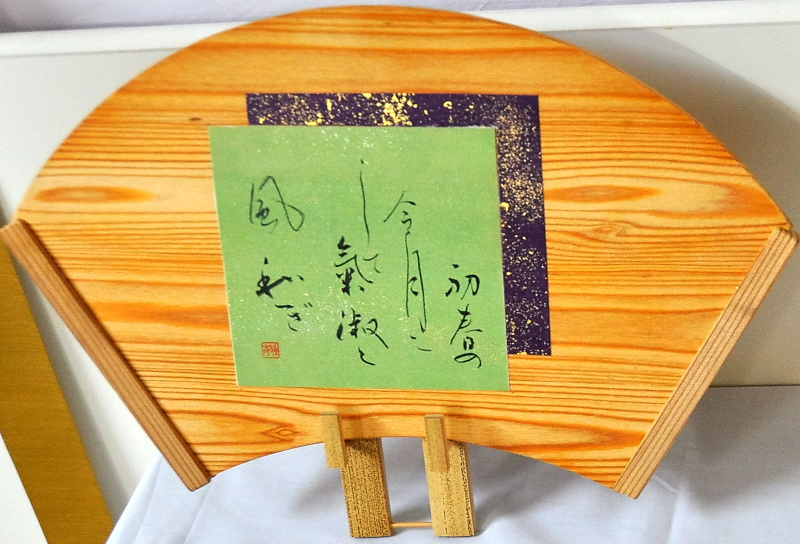 初春の
令月に
して氣淑く
風和ぎ